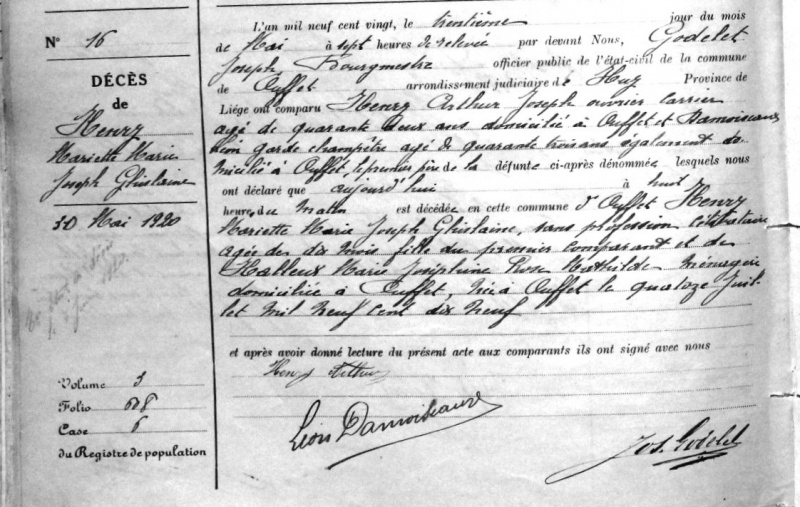 N° 16
DÉCÈS
de
Henry
Mariette Marie
Joseph Ghislaine
30 Mai 1920
Volume 3
Folio 608
Case 6
du Registre de population
L'an mil neuf cent vingt, le trentième jour du mois
de Mai à sept heures de relevée par devant Nous, Godelet
Joseph Bourgmestre officier public de l'état-civil de la commune
de Ouffet arrondissement judiciaire de Huy Province de
Liége ont comparu Henry Arthur Joseph ouvrier carrier
agé de quarante deux ans domicilié à Ouffet et Damoiseaux
Léon garde champêtre agé de quarante trois ans également do
micilié à Ouffet, le premier père de la défunte ci-après dénommée lesquels nous
ont déclaré que aujourd'hui à huit
heures du matin est décédée en cette commune d'Ouffet Henry
Mariette Marie Joseph Ghislaine, sans profession célibataire
agée de dix mois fille du premier comparant et de
Halleux Marie Joséphine Rose Mathilde ménagère
domiciliée à Ouffet, née à Ouffet le quatoze Juil-
let mil neuf cent dix neuf
et après avoir donné lecture du présent acte aux comparants ils ont signé avec nous
Henry Arthur
Léon Damoiseaux
Jos. Godelet